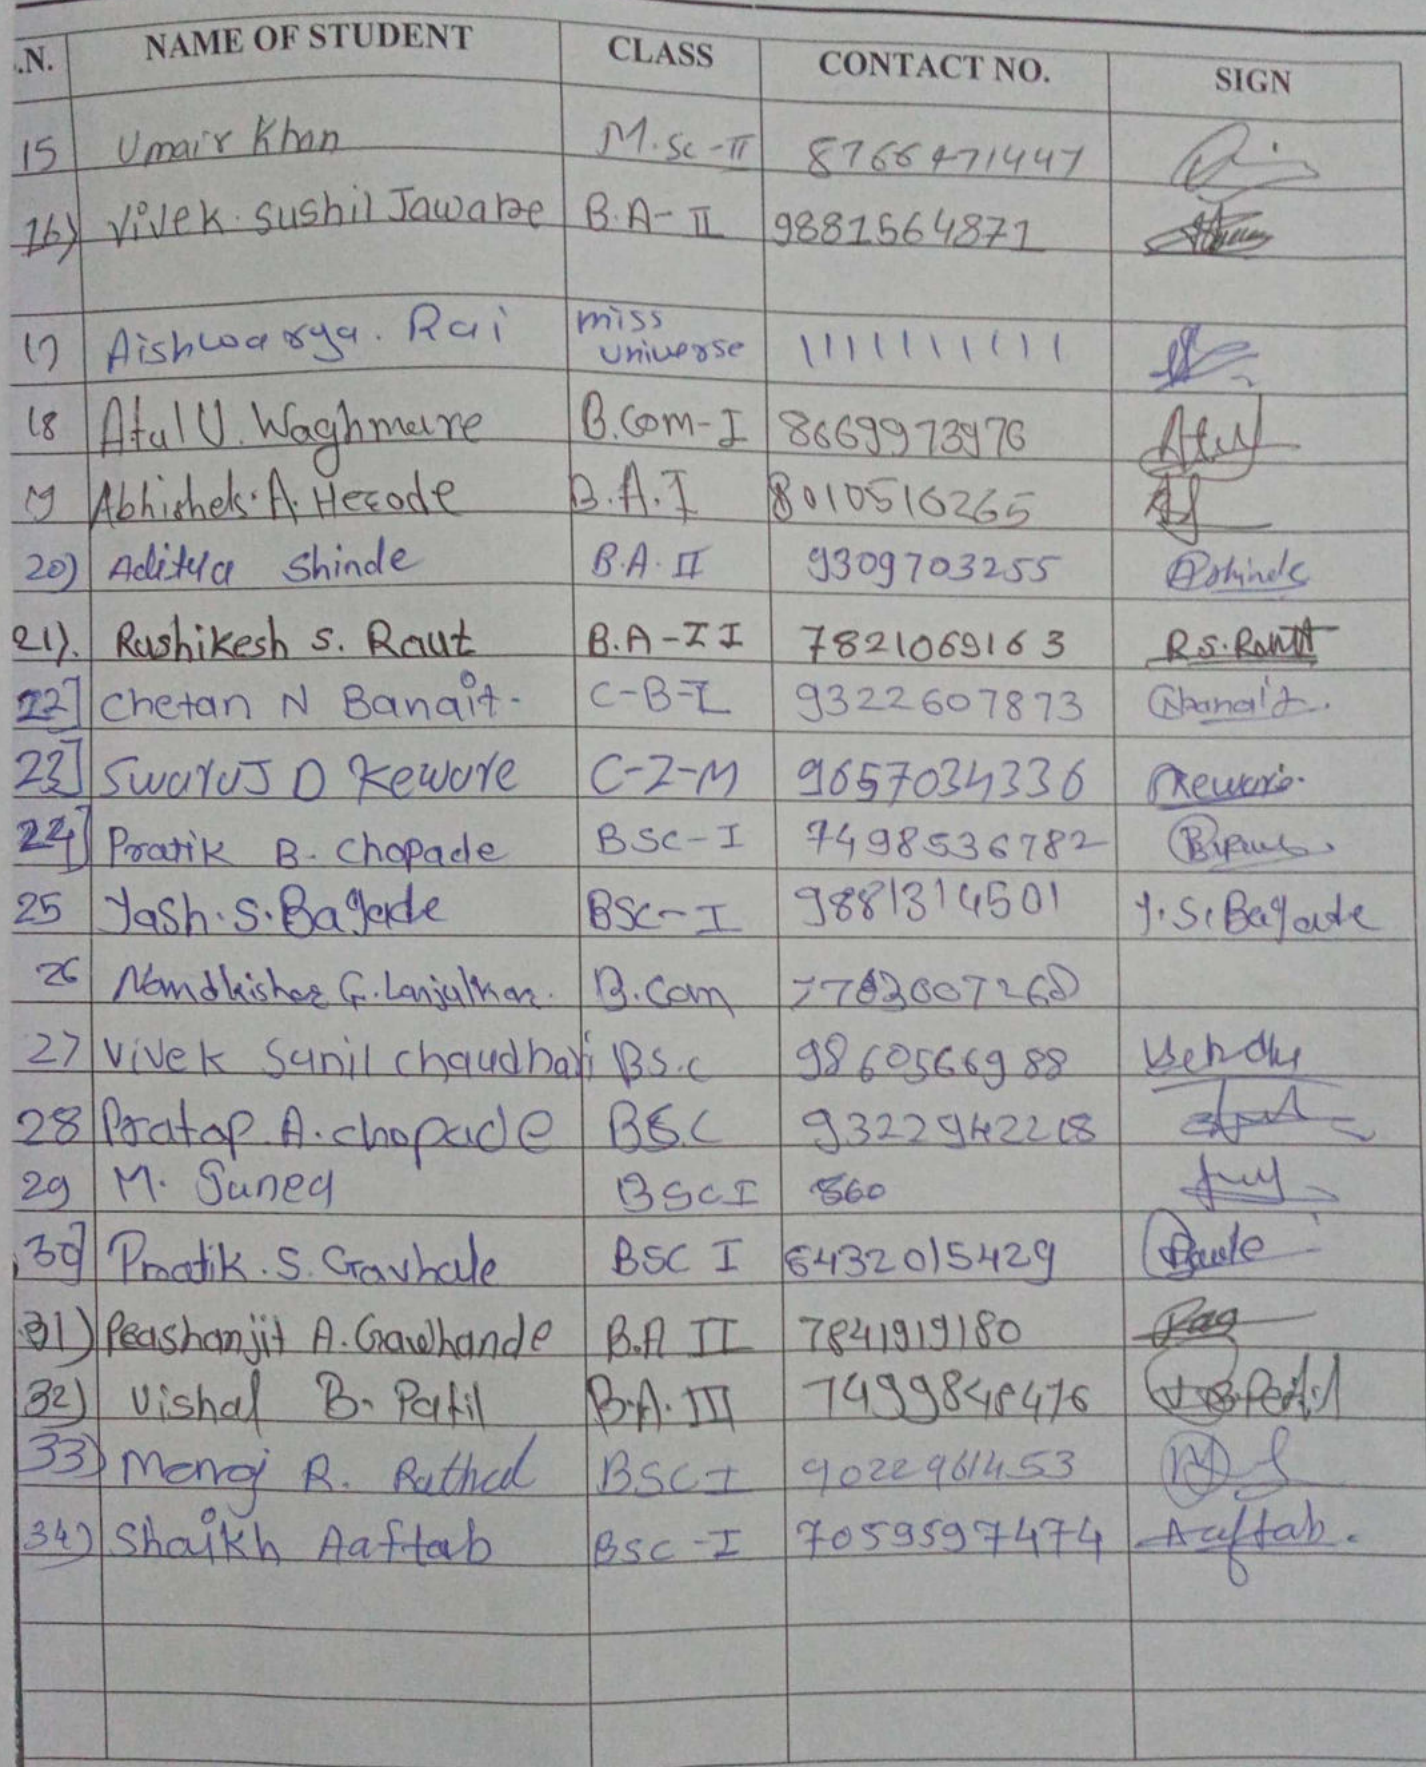 .N. NAME OF STUDENT CLASS CONTACT NO. SIGN
15 Umair Khan M.Sc-II 8766471447
16) Vivek. Sushil Jaware B.A-II 9881564871
17 Aishwarya. Rai miss universe 1111111111
18 Atul U. Waghmare B.Com-I 8669973976 Atul
19 Abhishek. A. Herode B.A.I 8010516265
20) Aditya Shinde B.A. II 9309703255 AShinde
21). Rushikesh S. Raut B.A-II 7821069163 R.S.Raut
22] Chetan N Banait. C-B-Z 9322607873 Banait.
23] Swaruj D Keware C-Z-M 9657034336 Keware.
24] Pratik B. Chopade BSC-I 7498536782
25 Yash.S.Bagade BSC-I 9881314501 Y.S.Bagade
26 Nandkishor G. Lanjulkar. B.Com
27 Vivek Sunil Chaudhari BS.C 9860566988
28 Pratap A. Chopade BS.C 9322942218
29 M. Juned BSC I 860
30] Pratik. S. Gavhale BSC I 6432015429
31) Prashanjit A. Gawhande B.A II 7841919180
32) Vishal B. Patil B.A. III 7499848476 V.B.Patil
33) Manoj R. Rathod BSC I 9022961453
34) Shaikh Aaftab BSC-I 7059597474 Aaftab.